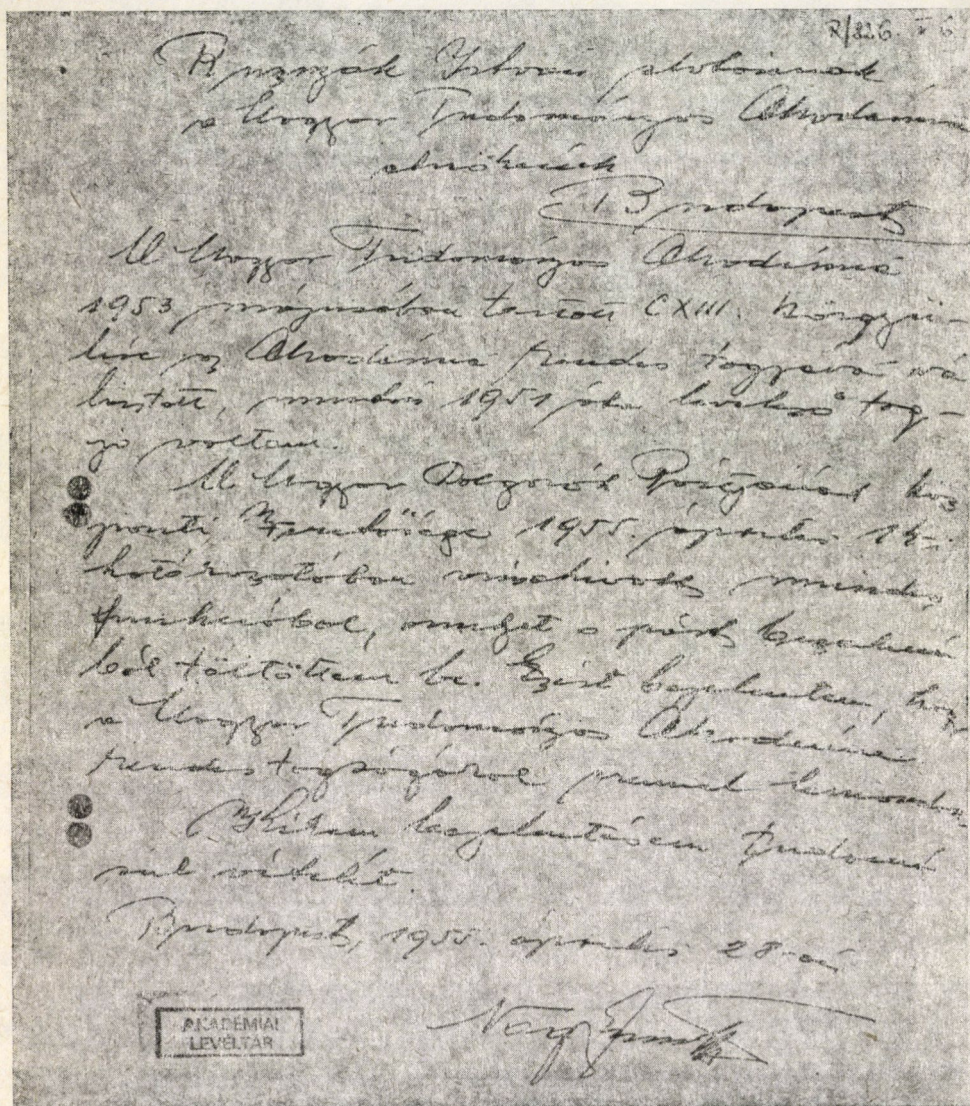 R/826.
Ruszyák István elvtársnak
a Magyar Tudományos Akadémia
elnökének
Budapest
A Magyar Tudományos Akadémia
1953 májusában tartott CXIII. közgyű-
lése az Akadémia rendes tagjává vá
lasztott, miután 1951 óta levelező tag-
ja voltam.
A Magyar Dolgozók Pártjának Köz
ponti Vezetősége 1955. április 14-i
határozatában visszahívott minden
funkcióból, amelyet a párt
ból töltöttem be. Ezért bejelentem, hogy
a Magyar Tudományos Akadémia
rendes tagságáról lemondok.
Kérem bejelentésem tudomá
sul vételét.
Budapest, 1955. április 28-án
Nagy Imre
AKADÉMIAI
LEVÉLTÁR